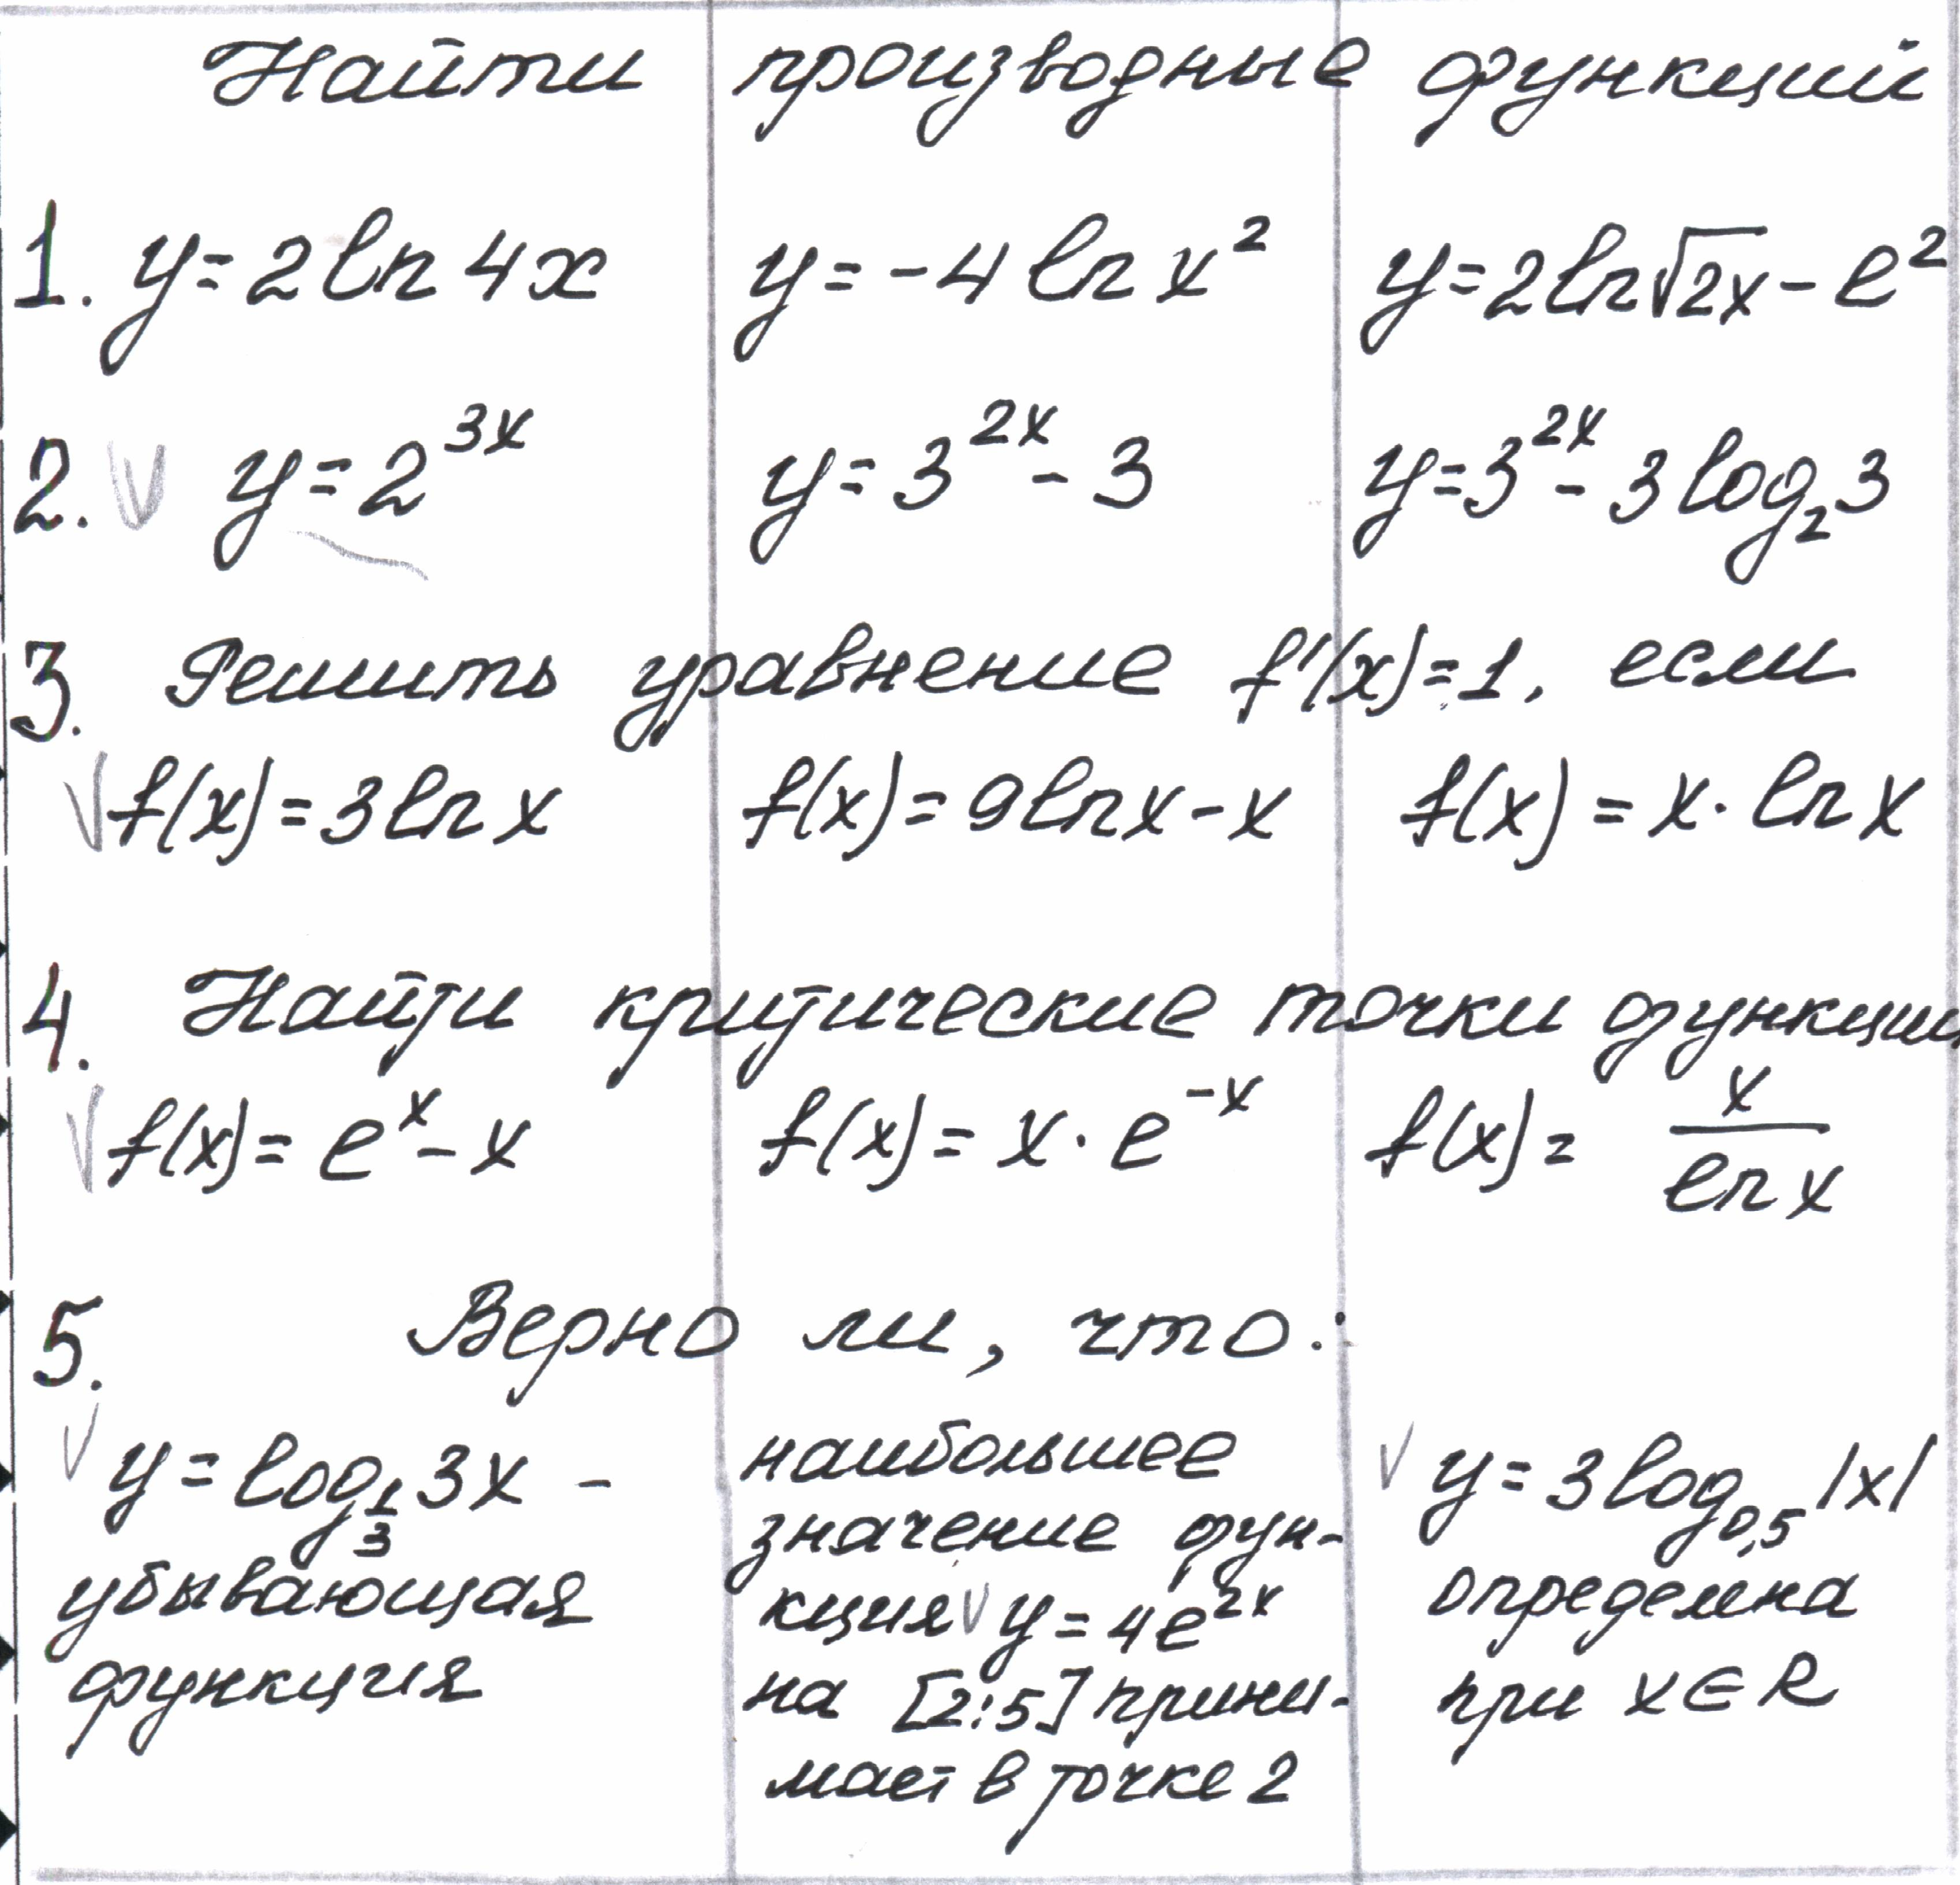 Найти производные функций
1. y = 2 ln 4x y = -4 ln x² y = 2 ln √2x - e²
2. V y = 2^3x y = 3^2x - 3 y = 3^2x - 3 log₂ 3
3. Решить уравнение f'(x) = 1, если
V f(x) = 3 ln x f(x) = 9 ln x - x f(x) = x · ln x
4. Найти критические точки функции
V f(x) = e^x - x f(x) = x · e^-x f(x) = x / ln x
5. Верно ли, что:
V y = log_1/3 3x -
убывающая
функция
наибольшее
значение фун-
кция V y = 4e^2x
на [2;5] прини-
мает в точке 2
V y = 3 log_0,5 |x|
определна
при x ∈ R